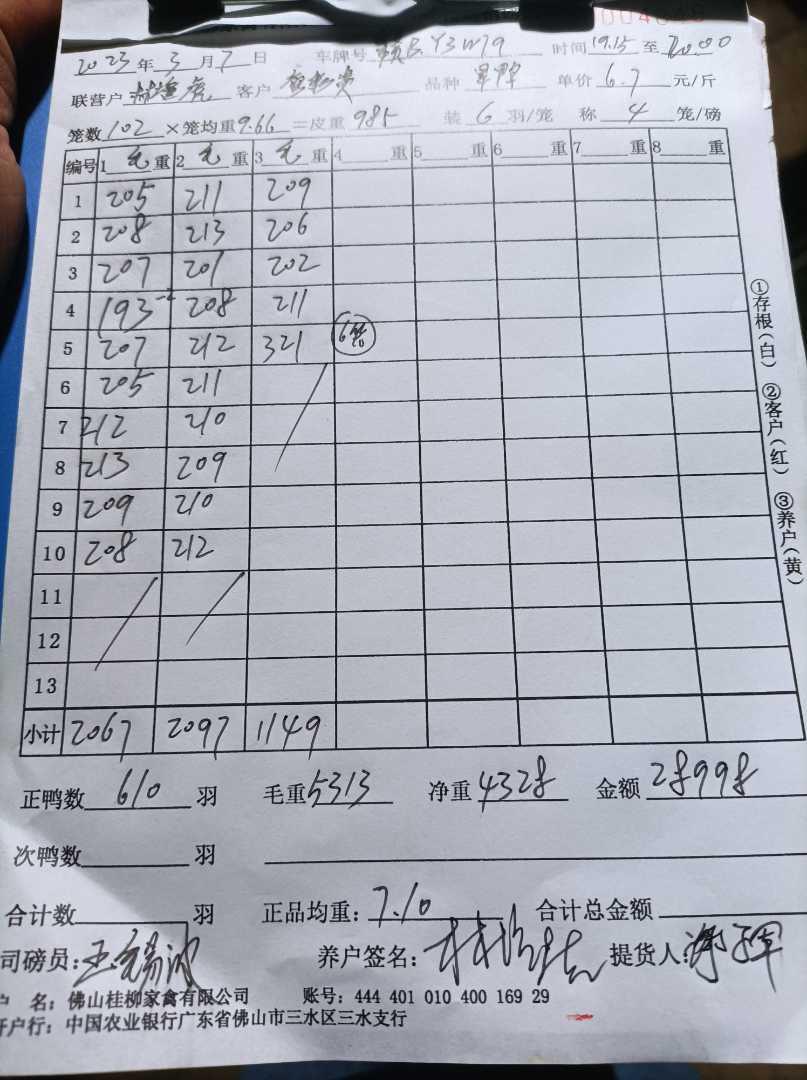 2023年3月7日 车牌号 赣B Y3W79 时间19.15至20.00
联营户 客户 品种 单价6.7元/斤
笼数102×笼均重9.66=皮重985 装6羽/笼 称4笼/磅
编号 1毛重 2毛重 3毛重 4重 5重 6重 7重 8重
1 205 211 209
2 208 213 206
3 207 201 202
4 193-2 208 211
5 207 212 321 6笼
6 205 211
7 212 210
8 213 209
9 209 210
10 208 212
11
12
13
小计 2067 2097 1149
正鸭数610羽 毛重5313 净重4328 金额28998
次鸭数羽
合计数羽 正品均重:7.10 合计总金额
司磅员: 养户签名: 提货人:
户 名:佛山桂柳家禽有限公司 账号:444 401 010 400 169 29
开户行:中国农业银行广东省佛山市三水区三水支行
①存根(白) ②客户(红) ③养户(黄)